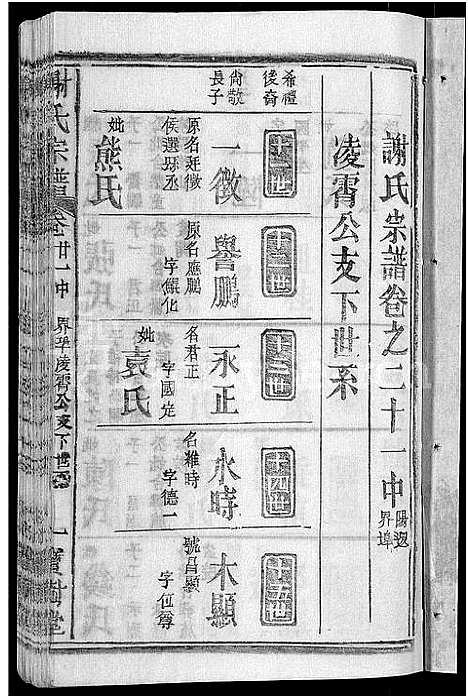 謝氏宗譜卷之二十一中
界埠
凌霄公支下世系
十一世
十二世
十三世
十四世
十五世
希禮後裔
尙敬長子
一徵
原名廷徵
侯選縣丞
妣熊氏
譽鵬
原名應鵬
字鯤化
永正
名君正
字國定
妣袁氏
永時
名雜時
字德一
木顯
號昌顯
字位尊
謝氏宗譜
卷廿一中
界埠凌霄公支下世系
一
寶樹堂